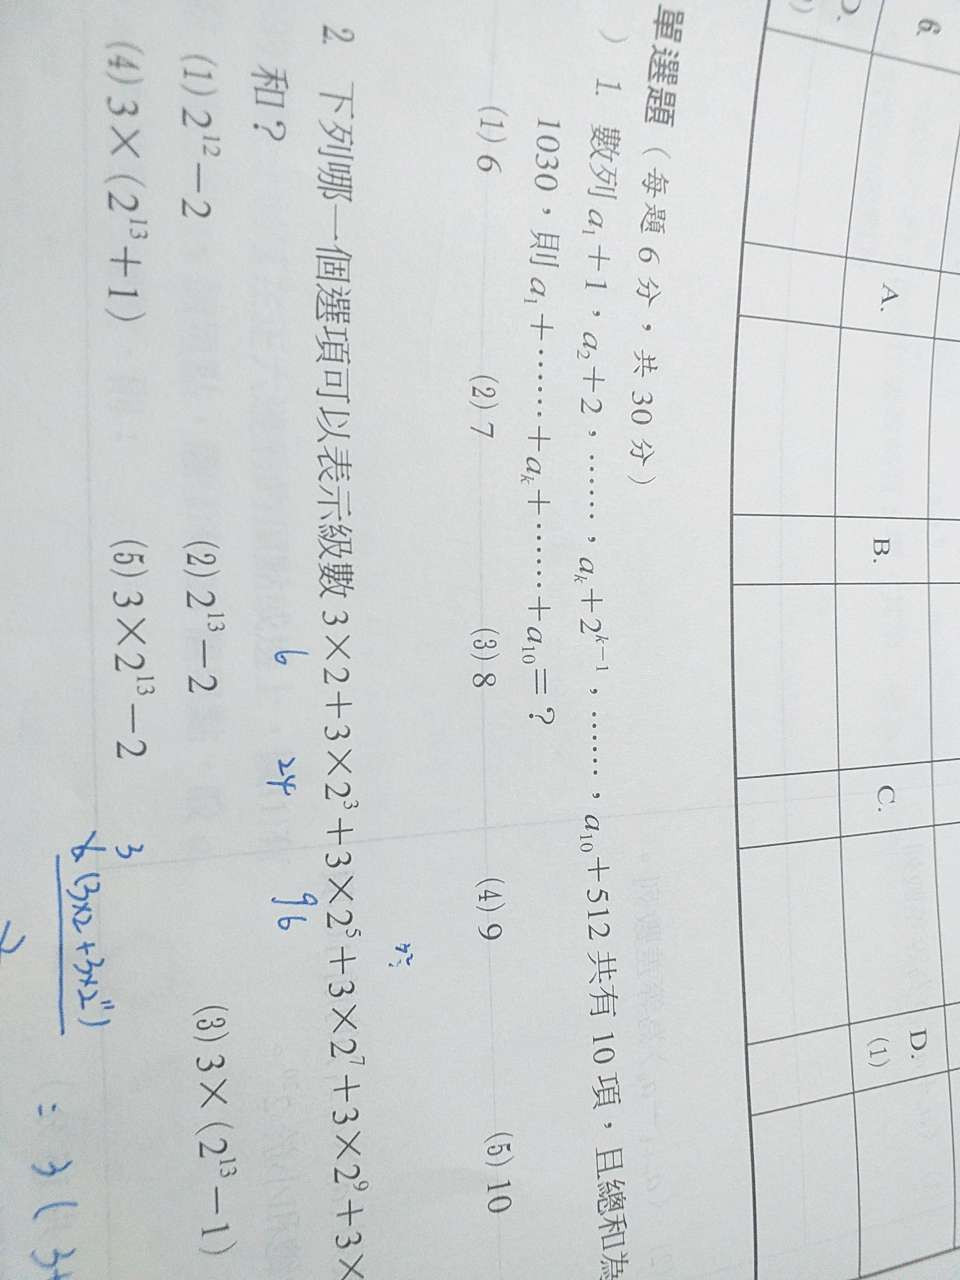 6.
A.
B.
C.
D.
(1)
單選題（每題6分，共30分）
） 1. 數列 a₁+1，a₂+2，……，aₖ+2ᵏ⁻¹，……，a₁₀+512 共有10項，且總和為
1030，則 a₁+……+aₖ+……+a₁₀=？
(1) 6 (2) 7 (3) 8 (4) 9 (5) 10
2. 下列哪一個選項可以表示級數 3×2+3×2³+3×2⁵+3×2⁷+3×2⁹+3×
6 24 96
和？
(1) 2¹²−2 (2) 2¹³−2 (3) 3×(2¹³−1)
(4) 3×(2¹³+1) (5) 3×2¹³−2
3
6(3×2+3×2¹¹)
2